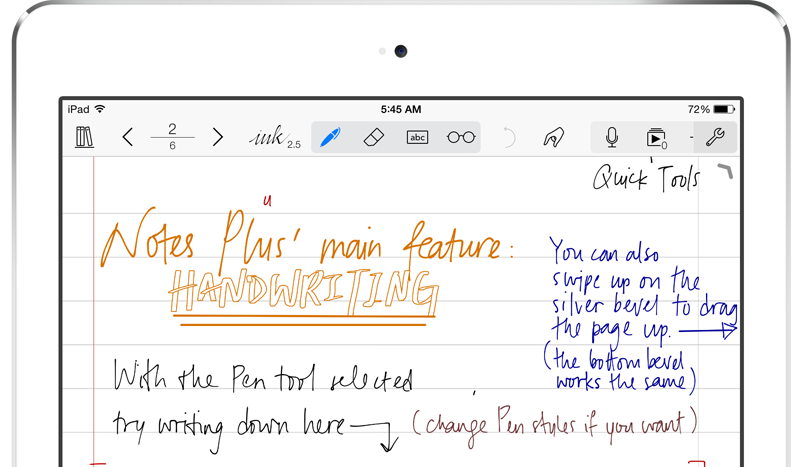 iPad 5:45 AM 72%
2
6
ink 2.5 abc 0
Quick Tools
u
Notes Plus' main feature:
HANDWRITING
You can also
swipe up on the
silver bevel to drag
the page up.
(the bottom bevel
works the same)
With the Pen tool selected
try writing down here
(change Pen styles if you want)